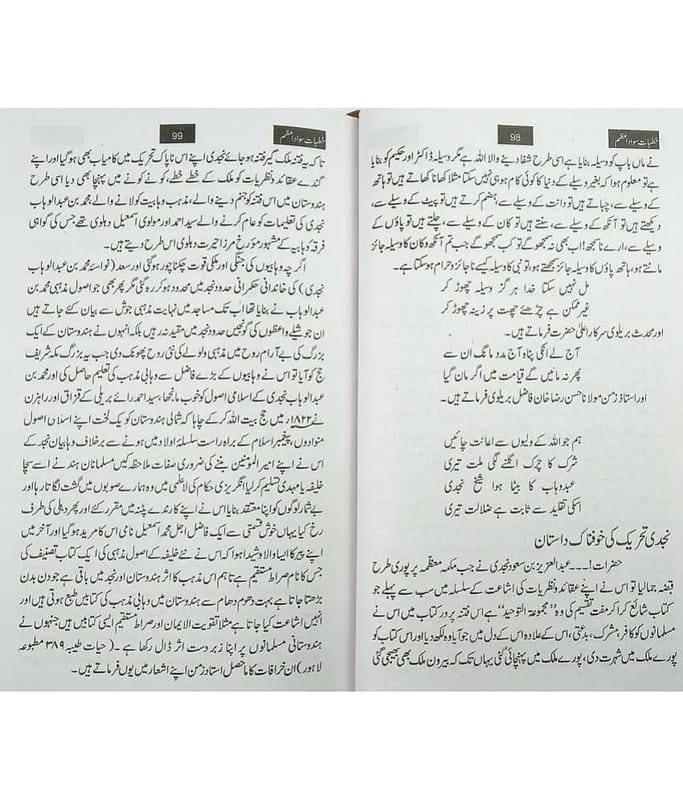 خطبات سواد اعظم
98
نے ماں باپ کو وسیلہ بنایا ہے اسی طرح شفا دینے والا اللہ ہے مگر وسیلہ ڈاکٹر اور حکیم کو بنایا
ہے تو معلوم ہوا کہ بغیر وسیلے کے دنیا کا کوئی کام ہو ہی نہیں سکتا مثلا کھانا کھاتے ہیں تو ہاتھ
کے وسیلے سے، چباتے ہیں تو دانت کے وسیلے سے، ہضم کرتے ہیں تو پیٹ کے وسیلے سے،
دیکھتے ہیں تو آنکھ کے وسیلے سے، سنتے ہیں تو کان کے وسیلے سے، چلتے ہیں تو پاؤں کے
وسیلے سے، ارے ناسمجھ! اب بھی نہ سمجھو گے تو کب سمجھو گے جب تم آنکھ و کان کا وسیلہ جائز
مانتے ہو، ہاتھ پاؤں کا وسیلہ جائز سمجھتے ہو، تو نبی کا وسیلہ کیسے ناجائز و حرام ہو سکتا ہے۔
مل نہیں سکتا خدا ہرگز وسیلہ چھوڑ کر
غیر ممکن ہے چڑھئے چھت پر زینہ چھوڑ کر
اور محدث بریلوی سرکار اعلیٰ حضرت فرماتے ہیں۔
آج لے انکی پناہ آج مدد مانگ ان سے
پھر نہ مانیں گے قیامت میں اگر مان گیا
اور استاذ زمن مولانا حسن رضا خان فاضل بریلوی فرماتے ہیں۔
ہم جو اللہ کے ولیوں سے اعانت چاہیں
شرک کا چرک اگلنے لگی ملت تیری
عبد وہاب کا بیٹا ہوا شیخ نجدی
اسکی تقلید سے ثابت ہے ضلالت تیری
نجدی تحریک کی خوفناک داستان
حضرات!۔۔۔ عبدالعزیز بن سعود نجدی نے جب مکہ معظمہ پر پوری طرح
قبضہ جما لیا تو اس نے اپنے عقائد و نظریات کی اشاعت کے سلسلہ میں سب سے پہلے جو
کتاب شائع کرا کر مفت تقسیم کی وہ "مجموعۃ التوحید" ہے اس فتنہ پرور کتاب میں اس نے
مسلمانوں کو کافر، مشرک، بدعتی، اس کے علاوہ اس کے دل میں جو آیا وہ لکھ دیا اور اس کتاب کو
پورے ملک میں شہرت دی، پورے ملک میں پہنچائی گئی یہاں تک کہ بیرون ملک بھی بھیجی گئی
خطبات سواد اعظم
99
تا کہ یہ فتنہ ملک گیر فتنہ ہو جائے نجدی اپنے اس ناپاک تحریک میں کامیاب بھی ہو گیا اور اپنے
گندے عقائد و نظریات کو ملک کے خطے خطے، کونے کونے میں پہنچا بھی دیا اسی طرح
ہندوستان میں اس فتنہ کو جنم دینے والے، مذہب وہابیت کو لانے والے، محمد بن عبدالوہاب
نجدی کی تعلیمات کو عام کرنے والے سید احمد اور مولوی اسمعیل دہلوی تھے جس کی گواہی
فرقہ وہابیہ کے مشہور مؤرخ مرزا حیرت دہلوی اس طرح دیتے ہیں۔
اگرچہ وہابیوں کی جنگی اور ملکی قوت چکنا چور ہو گئی اور سعد (نواسۂ محمد بن عبدالوہاب
نجدی) کی خاندانی حکمرانی حدود نجد میں محدود ہو کر رہ گئی مگر پھر بھی جو اصول مذہبی محمد بن
عبدالوہاب نے بنایا تھا اب تک مساجد میں نہایت مذہبی جوش سے بیان کئے جاتے ہیں
ان جوشیلے واعظوں کی گونجیں حدود نجد میں مقید نہ رہیں بلکہ انہوں نے ہندوستان کے ایک
بزرگ کی بے آرام روح میں مذہبی ولولے کی نئی روح پھونک دی جب یہ بزرگ مکہ شریف
حج کو آیا تو اس نے وہابیوں کے بڑے فاضل سے وہابی مذہب کی تعلیم حاصل کی اور محمد بن
عبدالوہاب نجدی کے اسلامی اصول کو خوب مانجھا، سید احمد رائے بریلی کے قزاق اور راہزن
نے ۱۸۲۲ء میں حج بیت اللہ کر کے چاہا کہ شمالی ہندوستان کو یک لخت اپنے اسلامی اصول
منوا دوں، پیغمبر اسلام کے براہ راست سلسلۂ اولاد میں ہونے سے برخلاف وہابیان نجد کے
اس نے اپنے امیر المومنین بننے کی ضروری صفات ملاحظہ کیں مسلمانان ہند نے اسے سچا
خلیفہ یا مہدی تسلیم کر لیا انگریزی حکام کی لاعلمی میں وہ ہمارے صوبوں میں گشت لگاتا رہا اور
بے شمار لوگوں کو اپنا معتقد بنایا اس نے اپنے کارندے پٹنہ میں مقرر کئے اور پھر دہلی کی طرف
رخ کیا یہاں خوش قسمتی سے ایک فاضل اجل محمد اسمعیل نامی اس کا مرید ہو گیا اور آخر میں
اپنے پیر کا ایسا والا و شیدا ہوا کہ اس نے نئے خلیفہ کے اصول مذہبی کی ایک کتاب تصنیف کی
جس کا نام صراط مستقیم ہے تاہم اس مذہب کا اثر ہندوستان اور نجد میں باقی ہے جو دن بدن
بڑھتا جاتا ہے بہت دھوم دھام سے ہندوستان میں وہابی مذہب کی کتابیں طبع ہوتی ہیں اور
انہیں اشاعت کیا جاتا ہے مثلا تقویت الایمان اور صراط مستقیم ایسی کتابیں ہیں جنہوں نے
ہندوستانی مسلمانوں پر اپنا زبردست اثر ڈال رکھا ہے۔ (حیات طیبہ ۳۸۹ مطبوعہ
لاہور) ان خرافات کا ماحصل استاد زمن اپنے اشعار میں یوں فرماتے ہیں۔